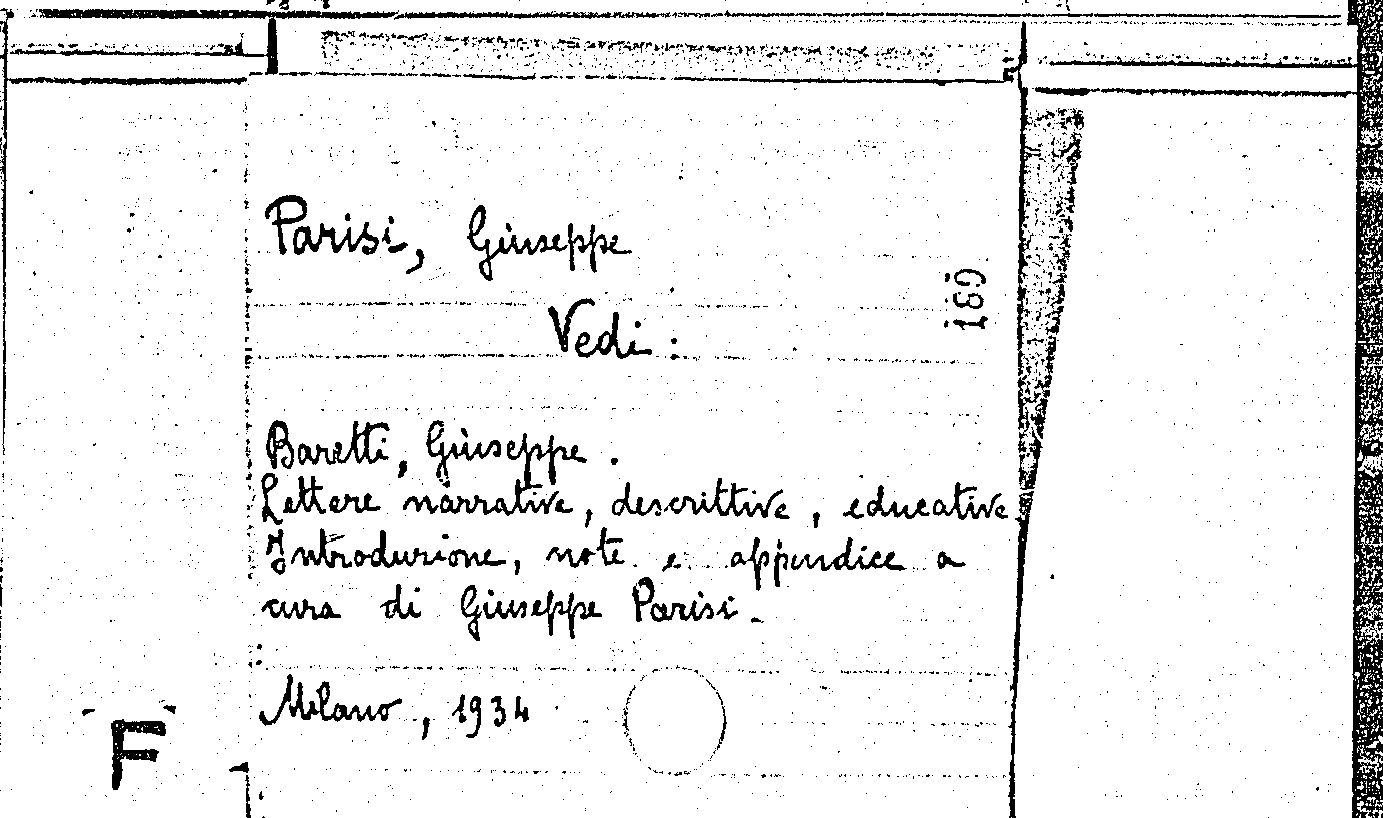 Parisi, Giuseppe
169
Vedi :
Baretti, Giuseppe .
Lettere narrative, descrittive, educative
Introduzione, note e appendice a
cura di Giuseppe Parisi.
Milano, 1934
F